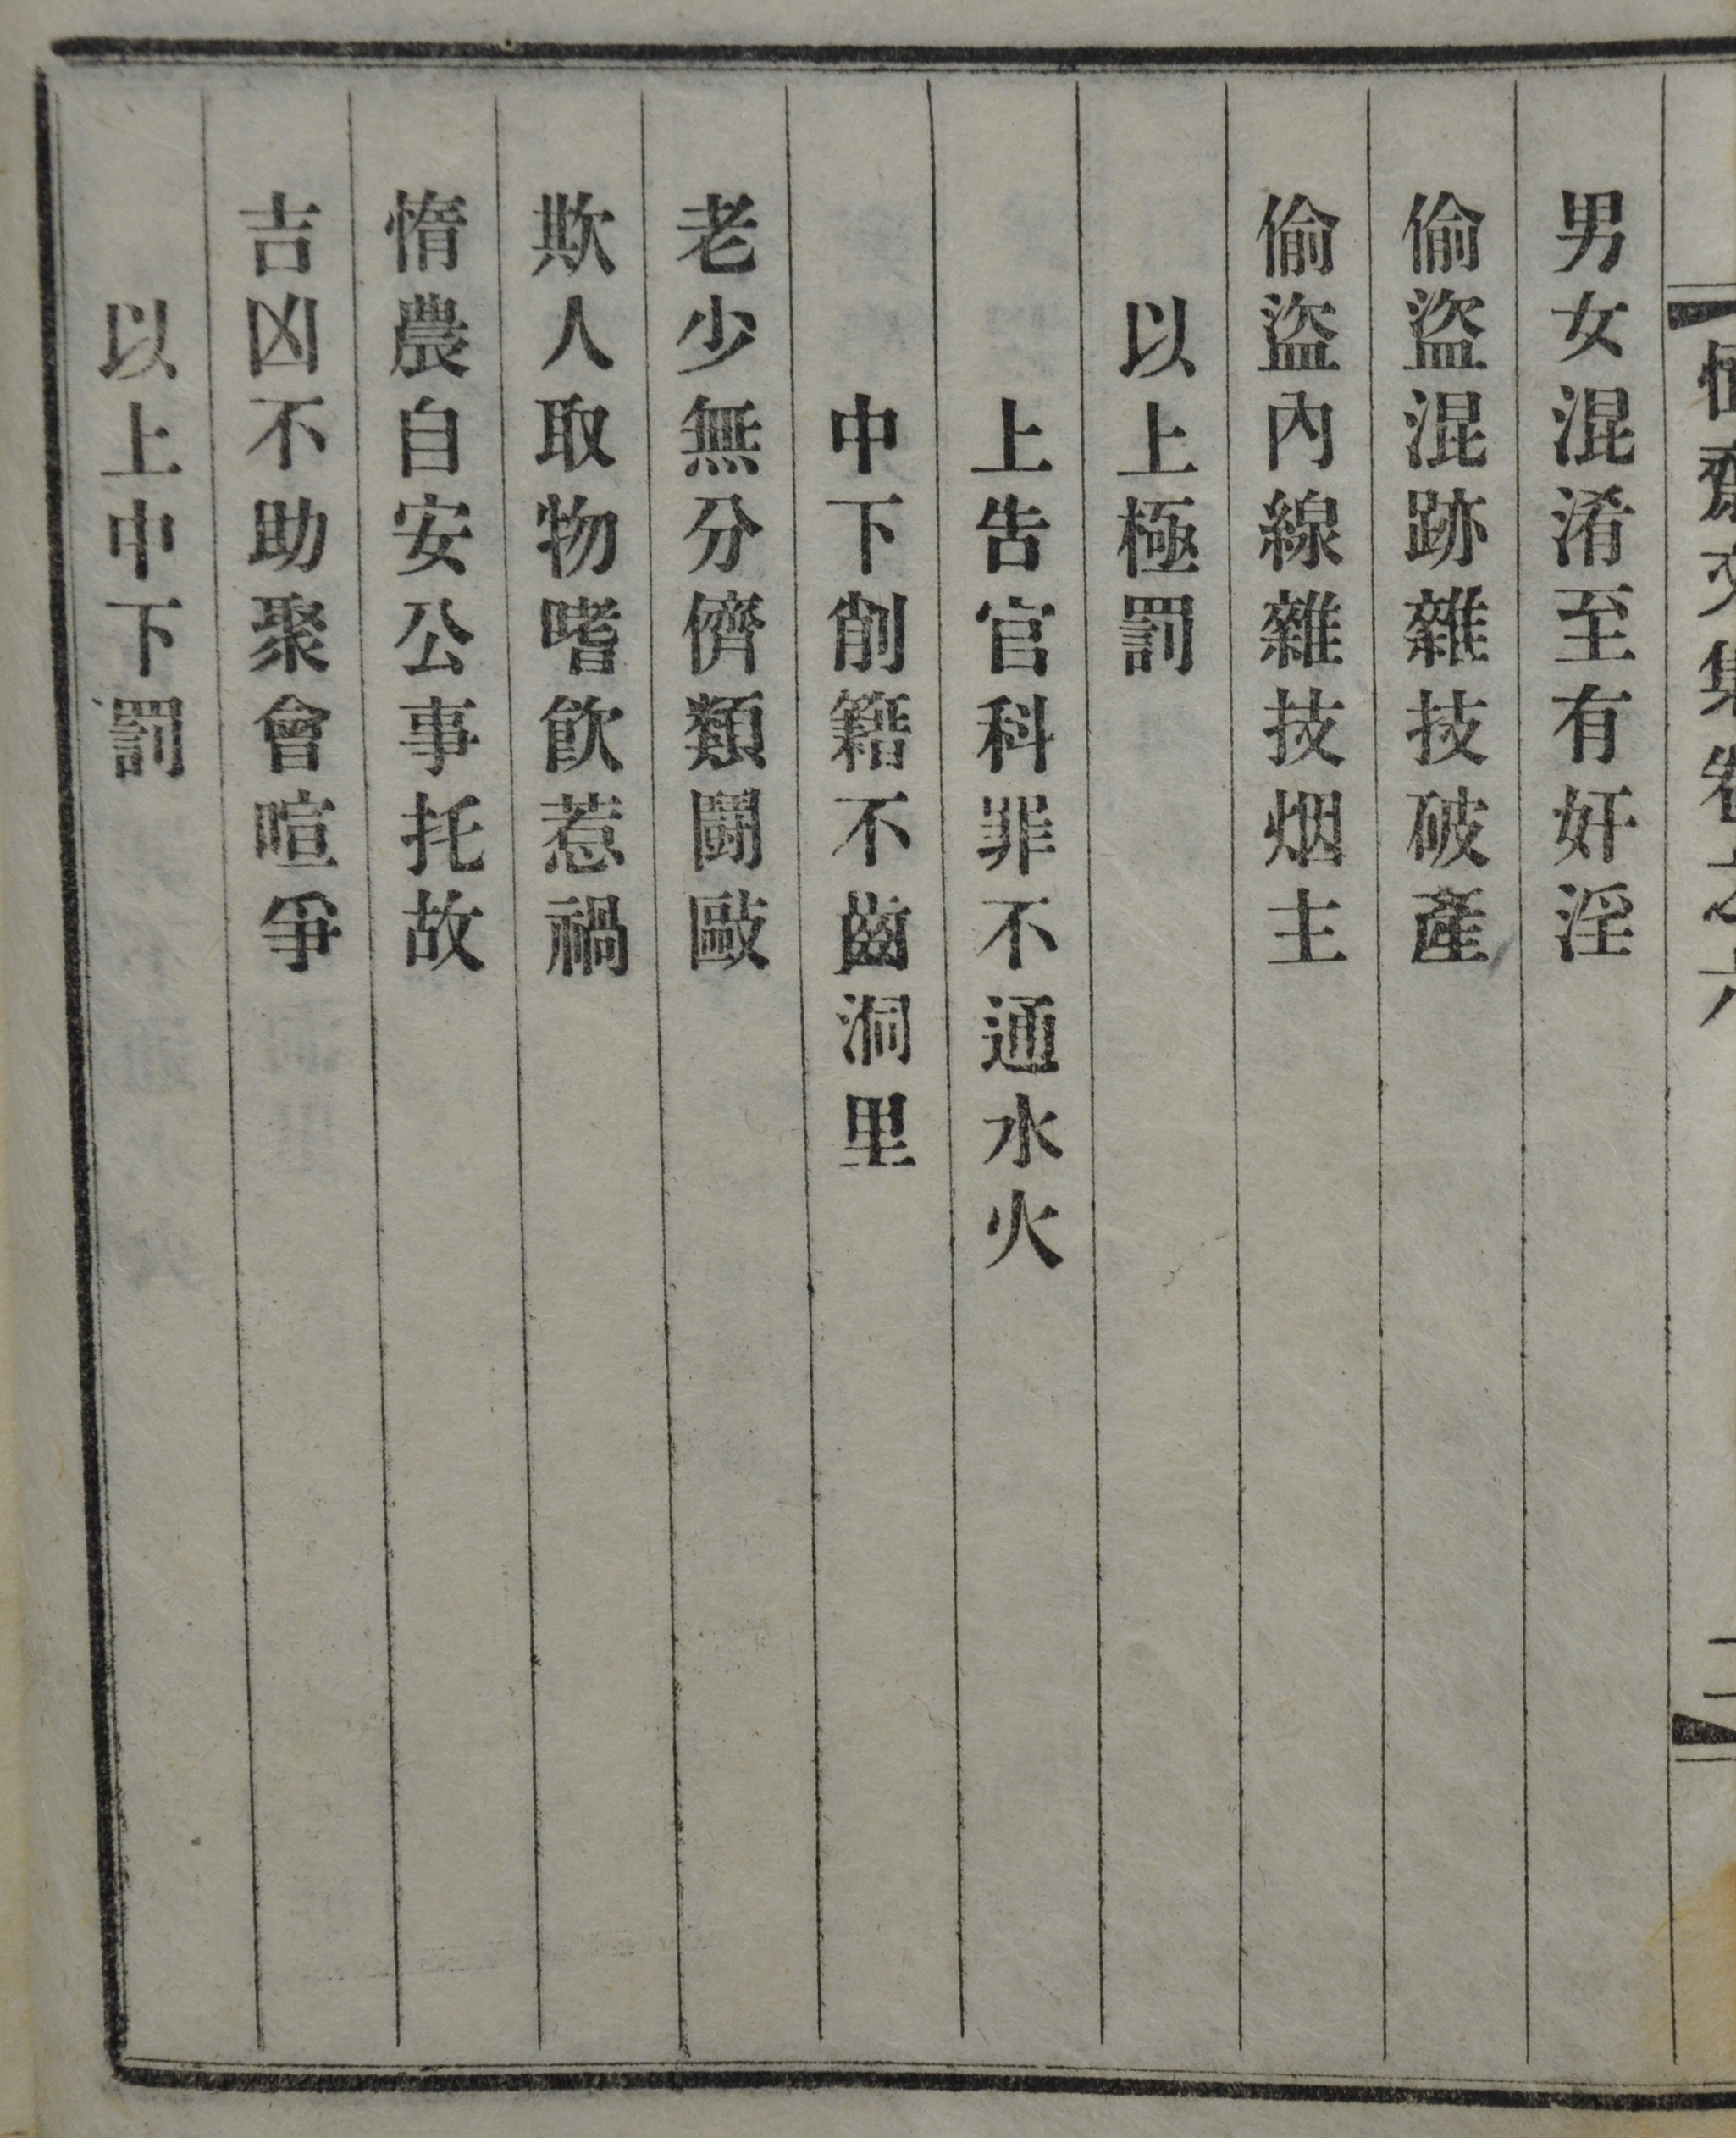 齋文集卷之六
二
男女混淆至有奸淫
偷盜混跡雜技破產
偷盜內線雜技烟主
以上極罰
上告官科罪不通水火
中下削籍不齒洞里
老少無分儕類鬪毆
欺人取物嗜飮惹禍
惰農自安公事托故
吉凶不助聚會喧爭
以上中下罰